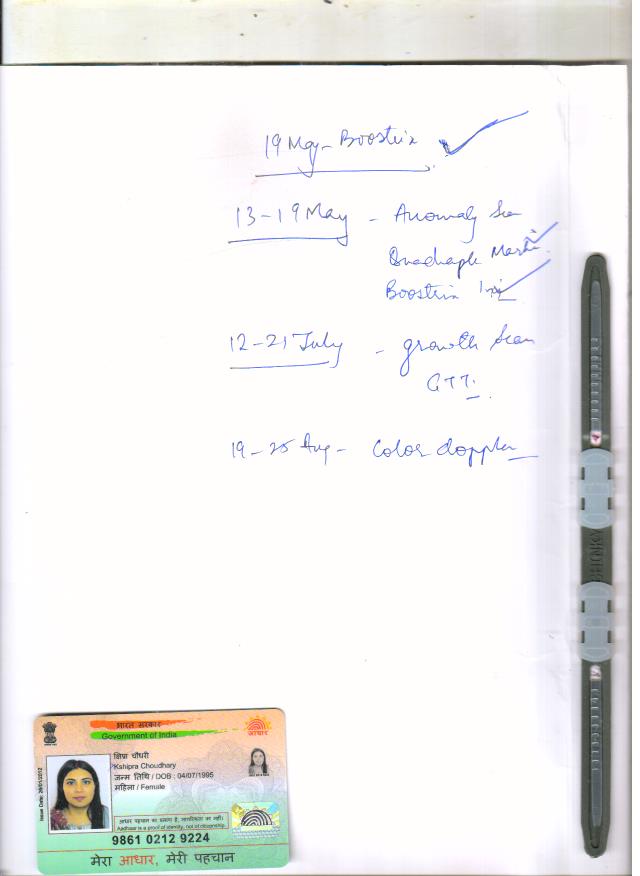 19 May - Boostrix
13-19 May - Anomaly Scan
Quadraple Marker
Boostrix Inj
12-21 July - growth Scan
GTT.
19-25 Aug - Color doppler
भारत सरकार
Government of India
आधार
Issue Date: 26/01/2012
क्षिप्रा चौधरी
Kshipra Choudhary
जन्म तिथि / DOB : 04/07/1995
महिला / Female
आधार पहचान का प्रमाण है, नागरिकता का नहीं।
Aadhaar is a proof of identity, not of citizenship.
9861 0212 9224
मेरा आधार, मेरी पहचान